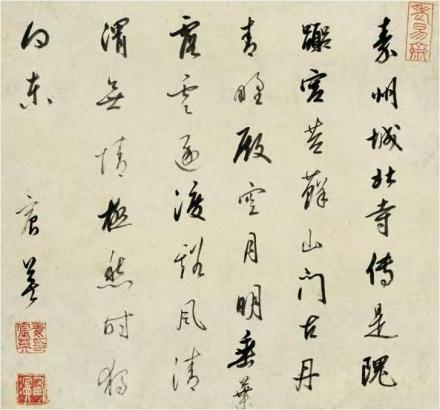 老易齋
秦州城北寺傳是隗
囂宮苔蘚山門古丹
青野殿空月明垂葉
露雲逐渡谿風清
渭無情極愁時獨
向東
宸英